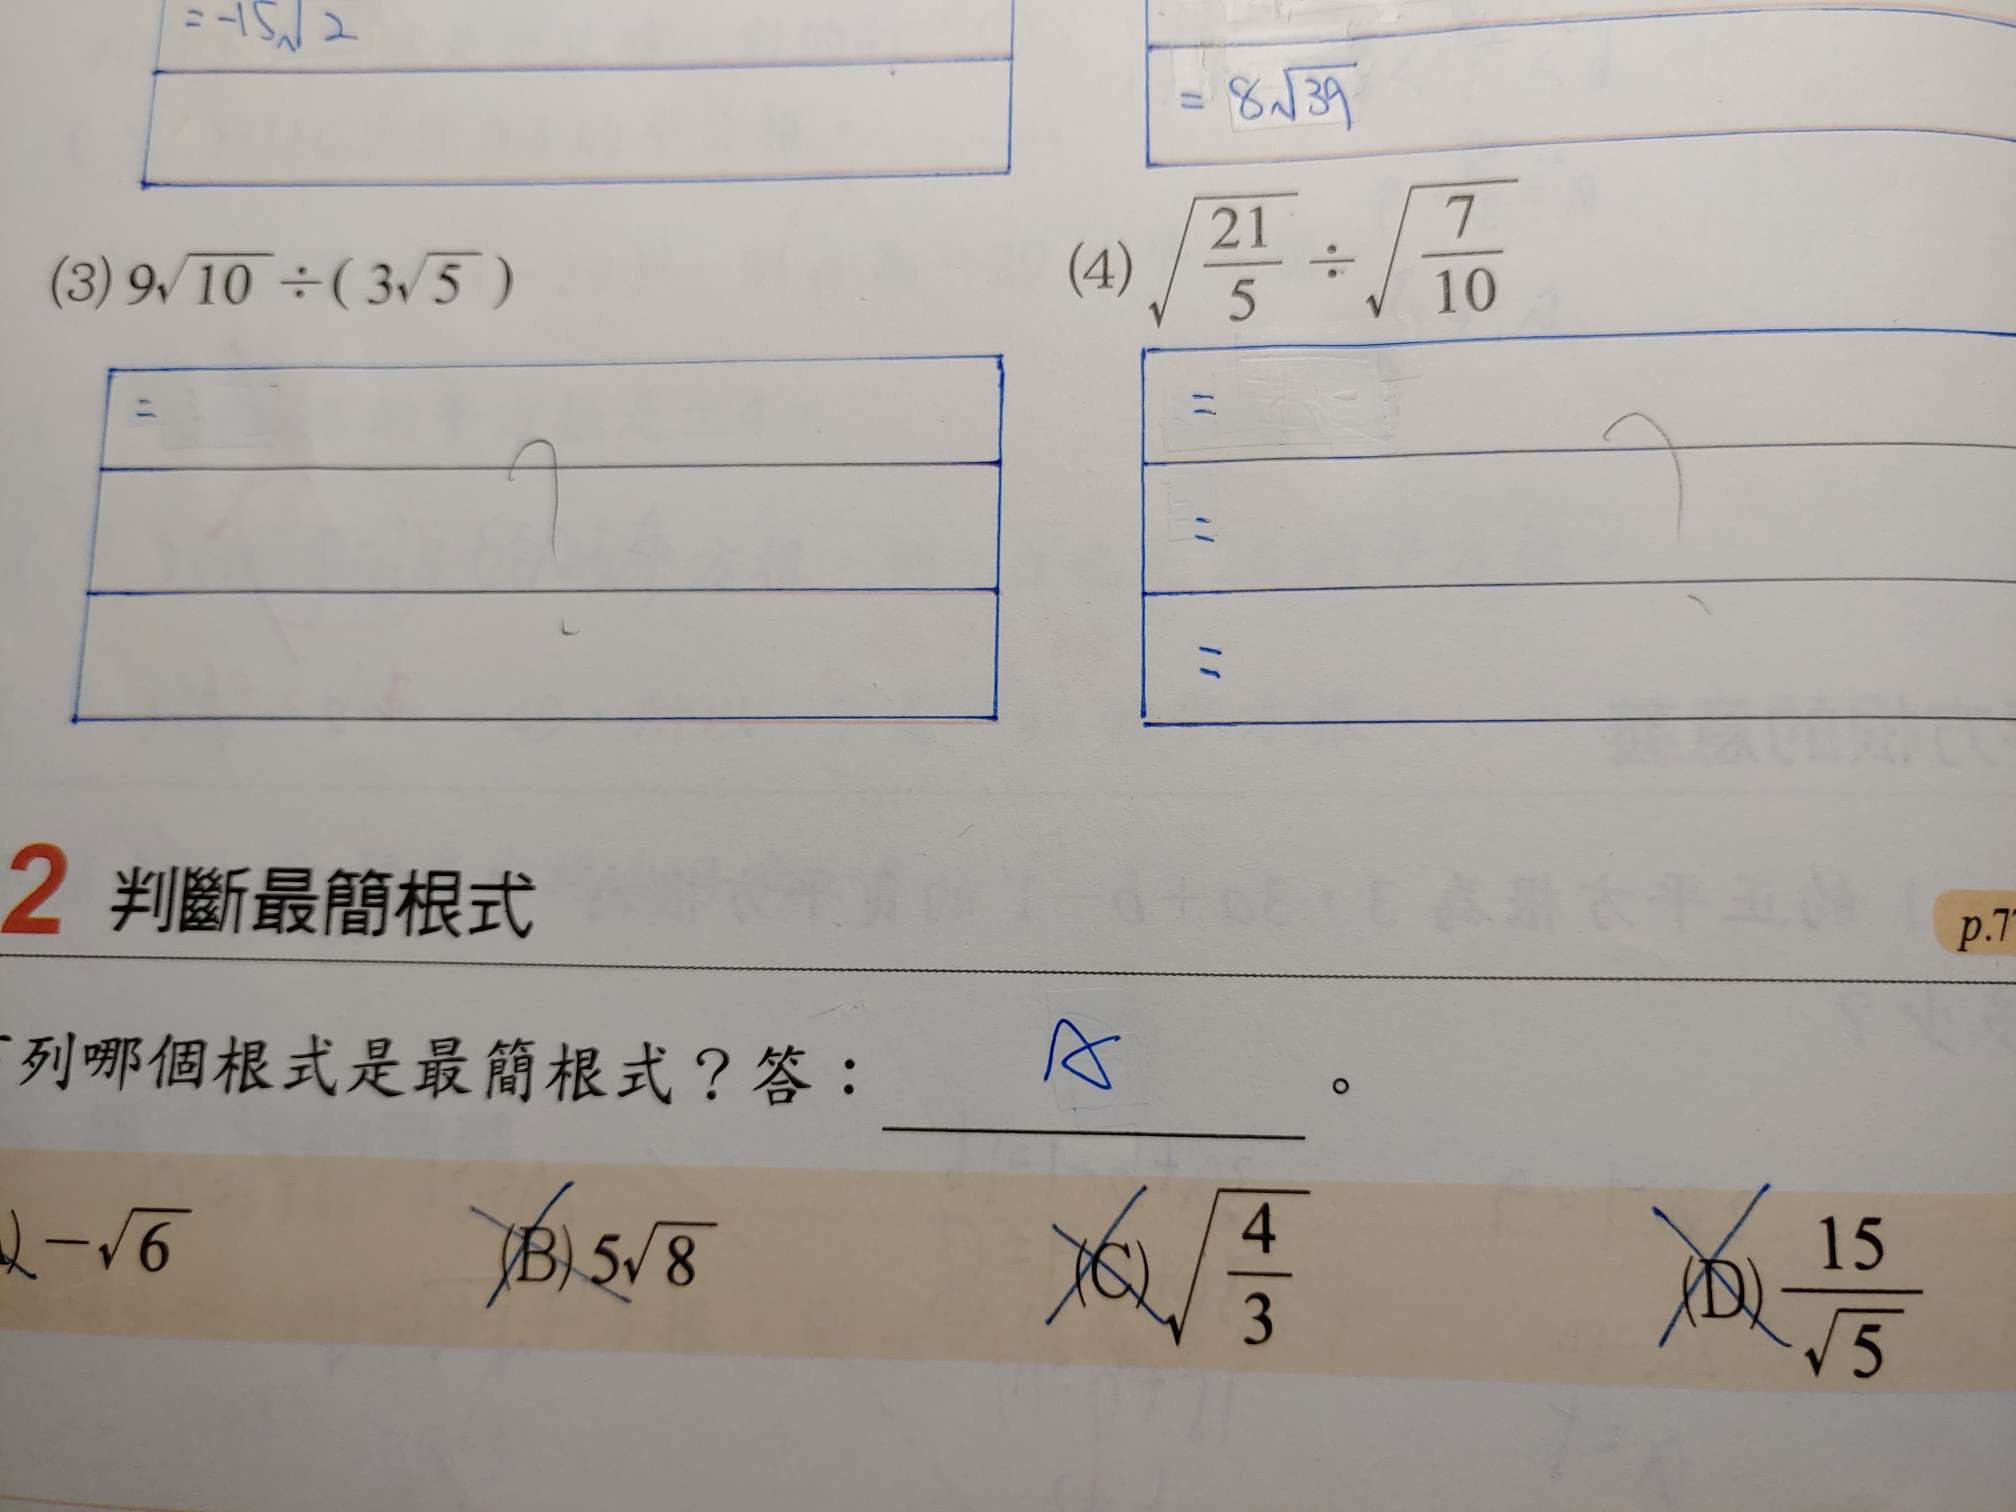 = -15√2
= 8√39
(3) 9√10 ÷ ( 3√5 )
(4) √(21/5) ÷ √(7/10)
=
=
=
=
2 判斷最簡根式
p.7
列哪個根式是最簡根式？答： A 。
) -√6 (B) 5√8 (C) √(4/3) (D) 15/√5